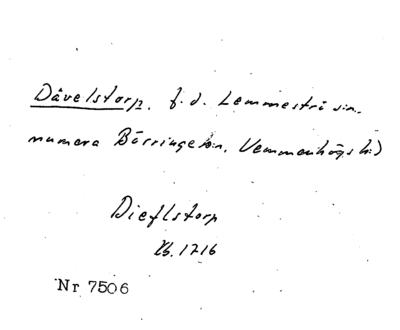 Dåvelstorp. f.d. Lemmeströ sn.
numera Börringe sn, Vemmenhögs h:d
Dieflstorp
Kb. 1716
Nr 7506